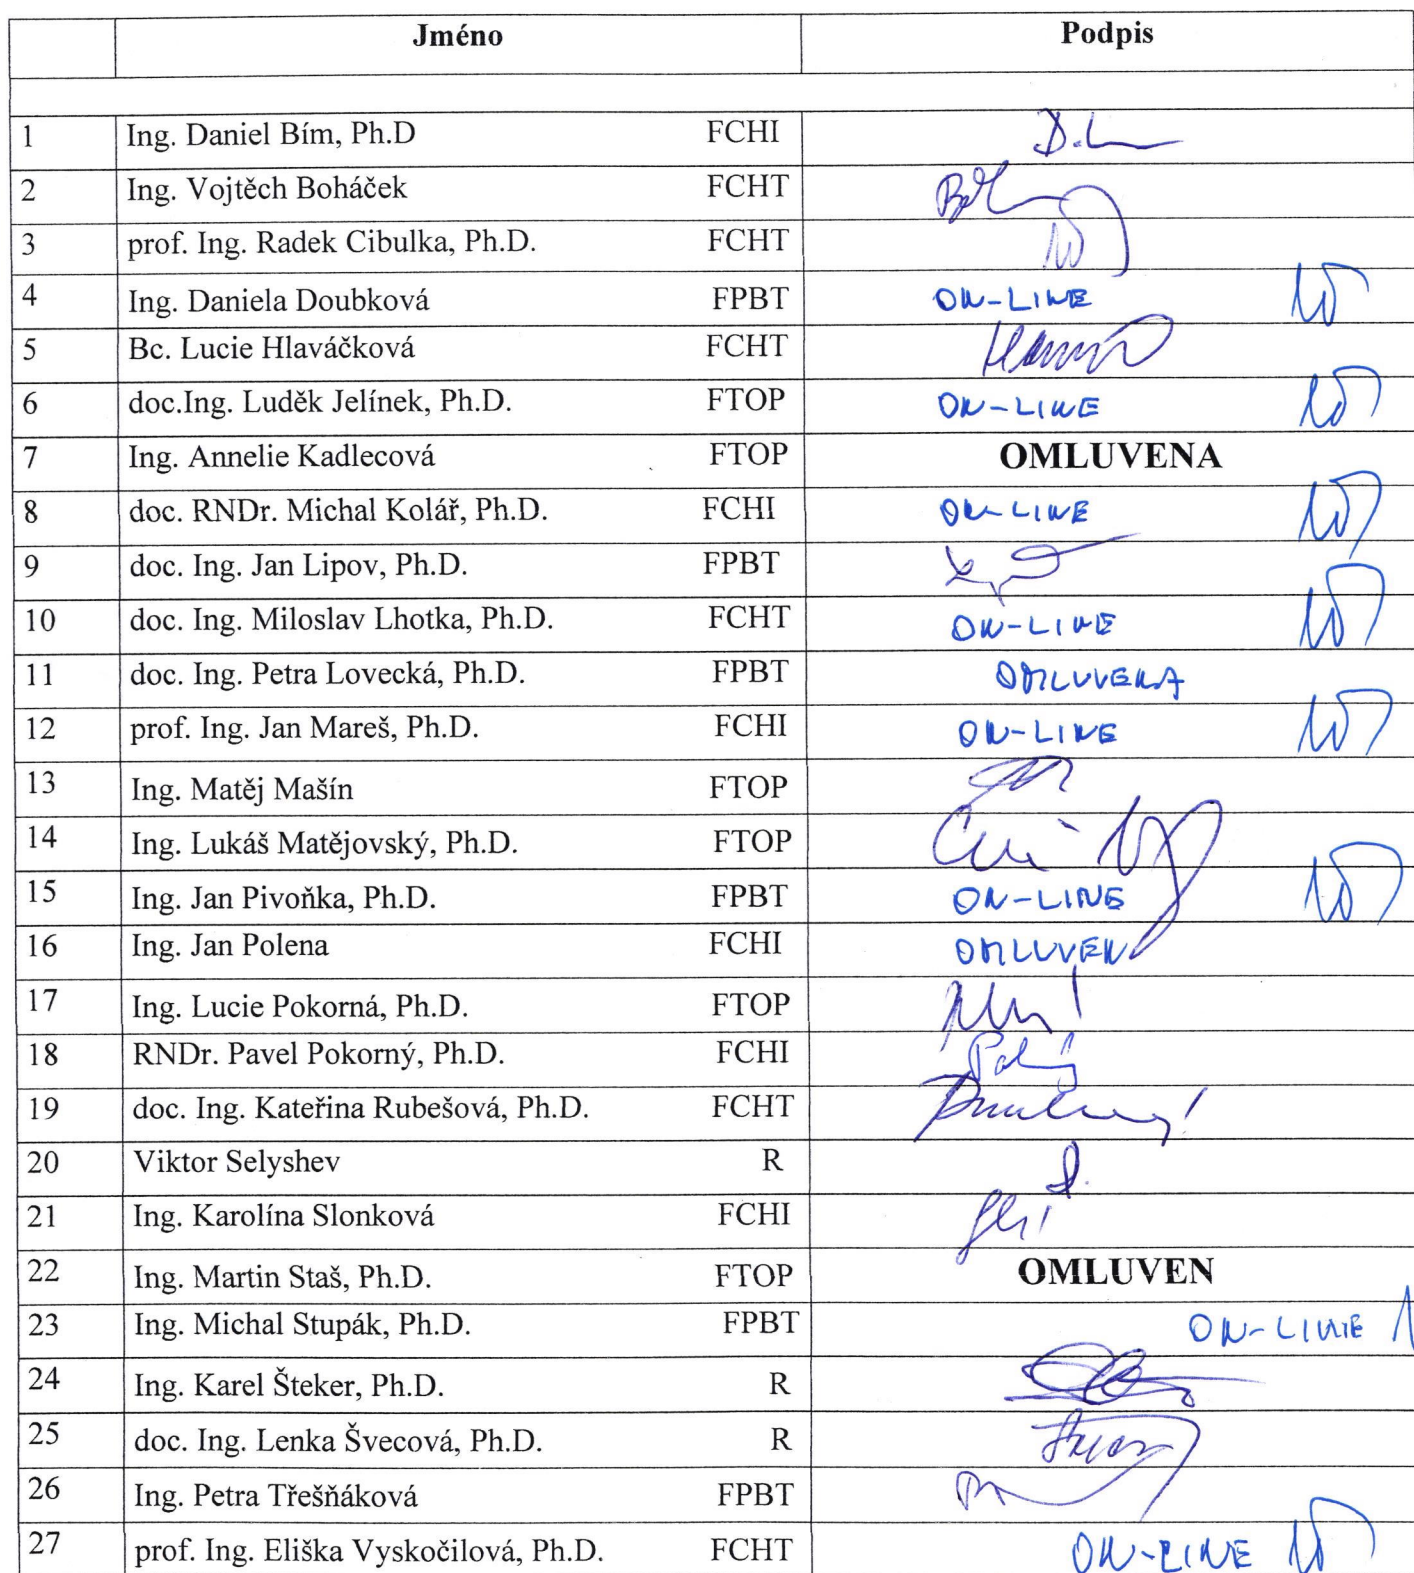 Jméno Podpis
1 Ing. Daniel Bím, Ph.D FCHI
2 Ing. Vojtěch Boháček FCHT
3 prof. Ing. Radek Cibulka, Ph.D. FCHT
4 Ing. Daniela Doubková FPBT ON-LINE
5 Bc. Lucie Hlaváčková FCHT
6 doc.Ing. Luděk Jelínek, Ph.D. FTOP ON-LINE
7 Ing. Annelie Kadlecová FTOP OMLUVENA
8 doc. RNDr. Michal Kolář, Ph.D. FCHI ON-LINE
9 doc. Ing. Jan Lipov, Ph.D. FPBT
10 doc. Ing. Miloslav Lhotka, Ph.D. FCHT ON-LINE
11 doc. Ing. Petra Lovecká, Ph.D. FPBT OMLUVENA
12 prof. Ing. Jan Mareš, Ph.D. FCHI ON-LINE
13 Ing. Matěj Mašín FTOP
14 Ing. Lukáš Matějovský, Ph.D. FTOP
15 Ing. Jan Pivoňka, Ph.D. FPBT ON-LINE
16 Ing. Jan Polena FCHI OMLUVEN
17 Ing. Lucie Pokorná, Ph.D. FTOP
18 RNDr. Pavel Pokorný, Ph.D. FCHI
19 doc. Ing. Kateřina Rubešová, Ph.D. FCHT
20 Viktor Selyshev R
21 Ing. Karolína Slonková FCHI
22 Ing. Martin Staš, Ph.D. FTOP OMLUVEN
23 Ing. Michal Stupák, Ph.D. FPBT ON-LINE
24 Ing. Karel Šteker, Ph.D. R
25 doc. Ing. Lenka Švecová, Ph.D. R
26 Ing. Petra Třešňáková FPBT
27 prof. Ing. Eliška Vyskočilová, Ph.D. FCHT ON-LINE